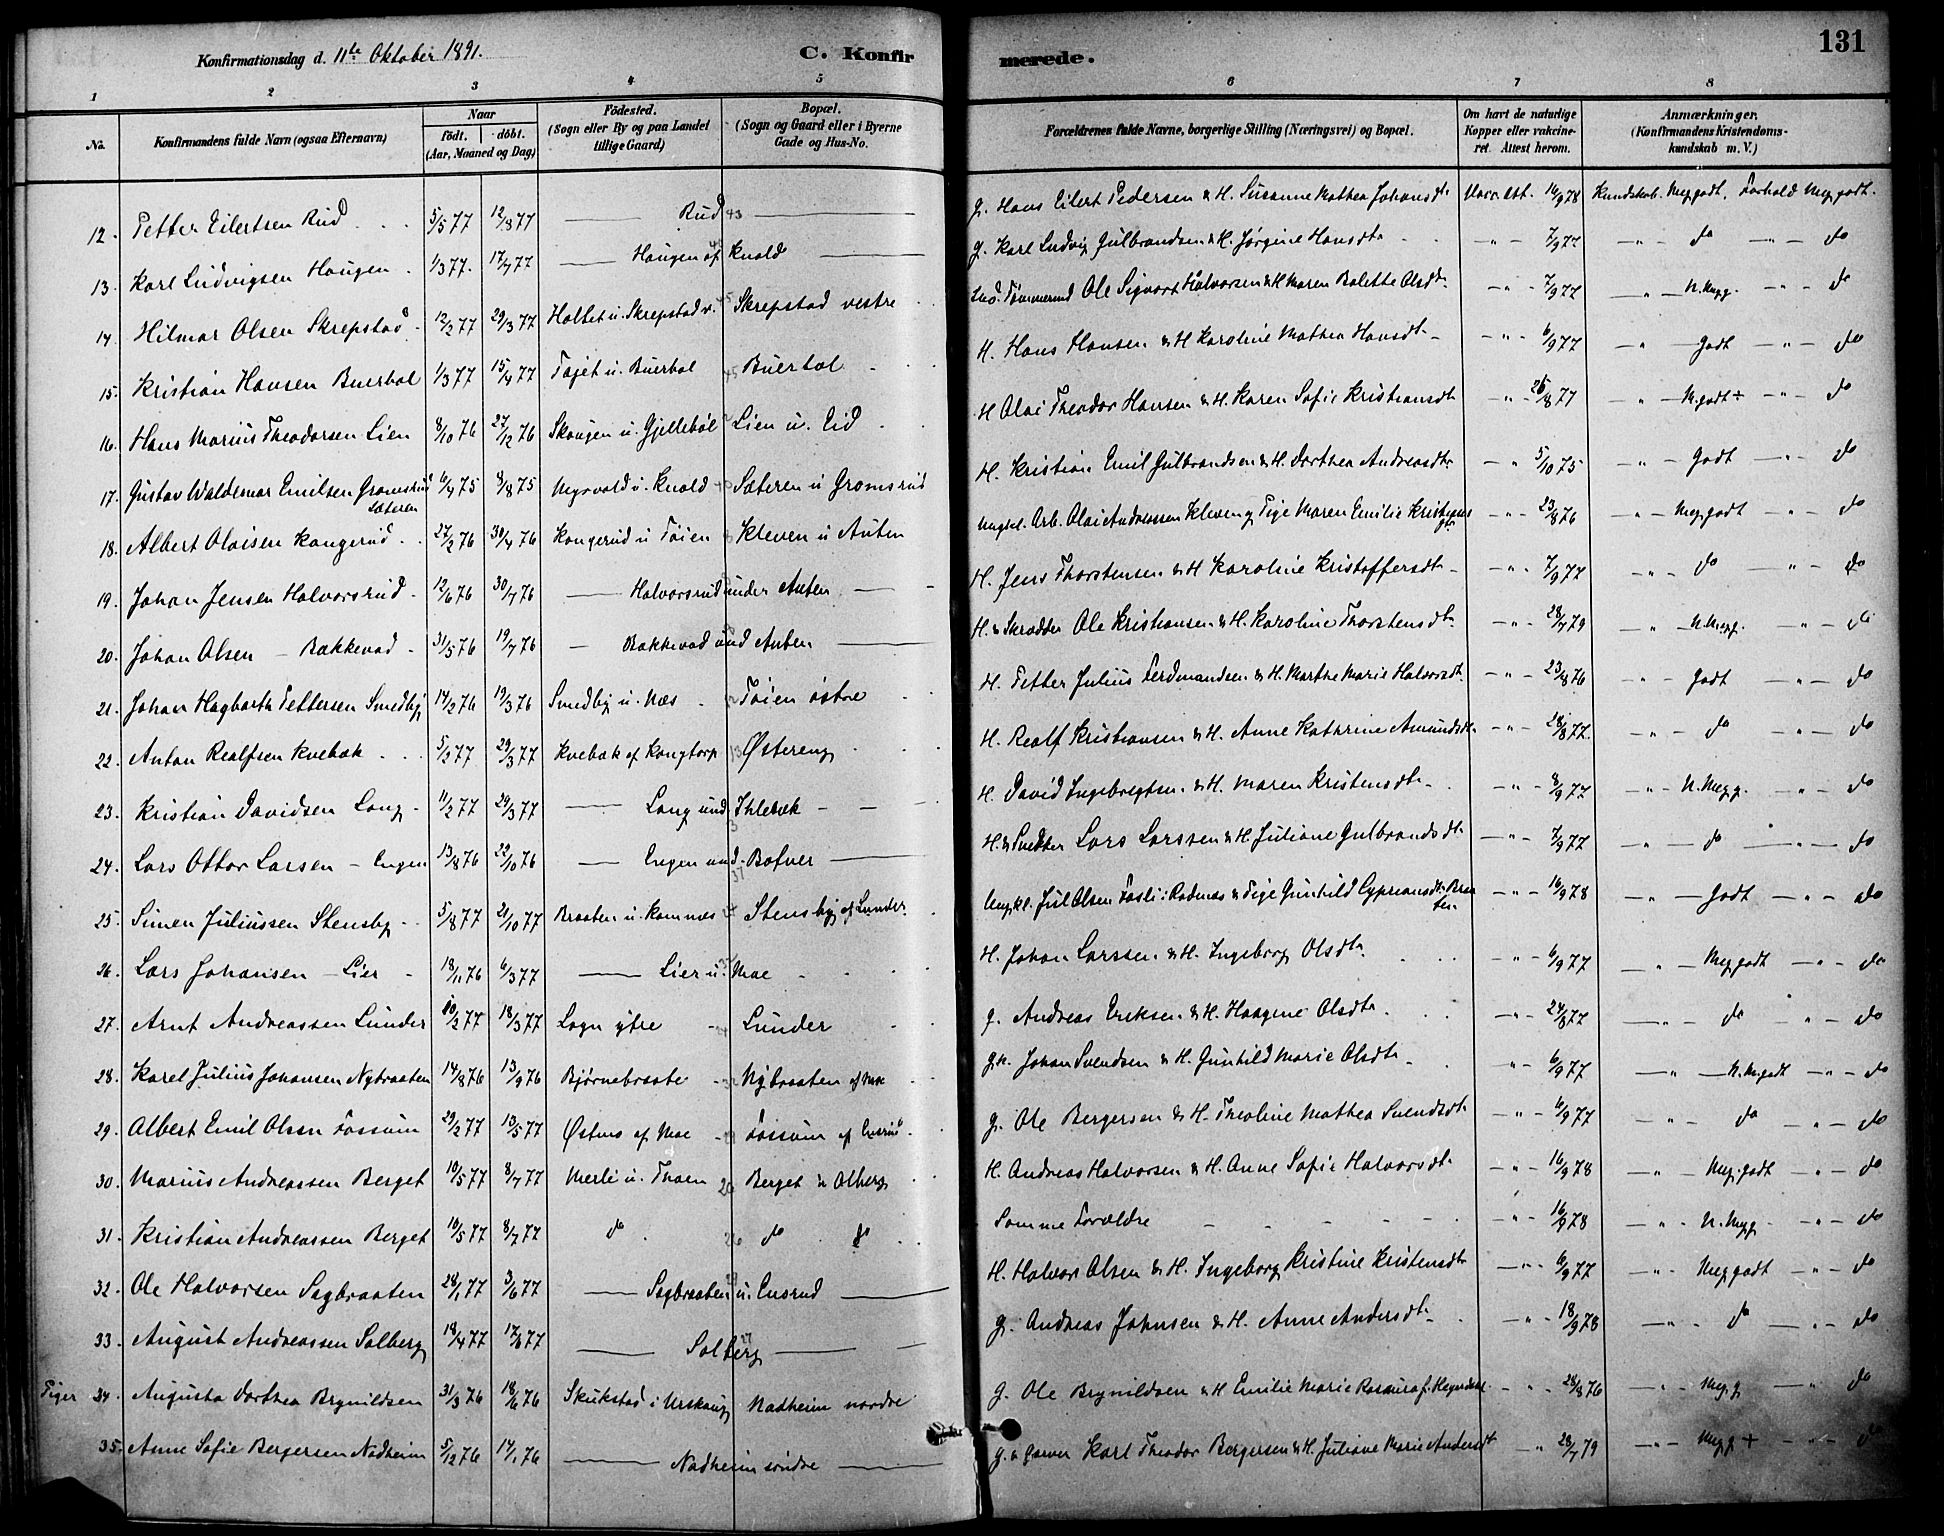 131
Konfirmationsdag d. 11te Oktober 1891.
C. Konfirmerede.
1 2 3 4 5 6 7 8
No. Konfirmandens fulde Navn (ogsaa Efternavn) Naar födt. döbt. (Aar, Maaned og Dag) Födested. (Sogn eller By og paa Landet tillige Gaard) Bopæl. (Sogn og Gaard eller i Byerne Gade og Hus-No. Forældrenes fulde Navne, borgerlige Stilling (Næringsvei) og Bopæl. Om havt de naturlige Kopper eller vakcineret. Attest herom. Anmærkninger. (Konfirmandens Kristendomskundskab m. V.)
12. Petter Eilertsen Rud 5/5 77 12/8 77 Rud G. Hans Eilert Pedersen & H. Susanne Mathea Johansdt. Vacc. att. 16/9 78 Kundskab. Meg. godt. Forhold Meg. godt.
13. Karl Ludvigsen Haugen 1/3 77. 17/7 77 Haugen af Knold G. Karl Ludvig Gulbrandsen & H. Jørgine Hansdt. 7/9 77 do do
14. Hilmar Olsen Skrepstad 12/2 77 29/3 77 Holtet u. Skrepstad v. Skrepstad vestre Ole Sigvart Halvorsen & H. Maren Bolette Olsdt. 7/9 77 N. Megg. do
15. Kristian Hansen Buerhol 1/3 77 15/4 77 Tøjet u. Buerhol Buerhol H. Hans Hansen & H Karoline Mathea Hansdt. 6/9 77 godt do
16. Hans Marius Theodorsen Lien 8/10 76 27/12 76 Skaugen u. Gjellebøl Lien u. Eid H Olai Theodor Hansen & H. Karen Sofie Kristiansdt 25/8 77 N. godt ÷ do
17. Gustav Waldemar Emilsen Gromsrud Sæteren 6/4 75 8/8 75 Myrvold u. Knold Sæteren u Gromsrud H. Kristian Emil Gulbrandsen & H. Dorthea Andreasdtr 5/10 75 godt do
18. Albert Olaisen Kangerud 27/2 76 30/4 76 Kongerud u Töien Kleven u Auten Ungkl. Arb. Olai Andreassen Kleven og Pige Maren Emilie 23/8 76 Meg. godt do
19. Johan Jensen Halvorsrud 12/6 76 30/7 76 Halvorsrud under Auten H. Jens Thorstensen & H Karoline Kristoffersdt. 7/9 77 do do
20. Johan Olsen Bakkevad 31/5 76 19/7 76 Bakkevad und Auten H. & Skrædder Ole Kristiansen & H. Karoline Thorstensdt. 28/7 79 N. Megg. do
21. Johan Hagbarth Pettersen Smedby 14/2 76 19/3 76 Smedby u. Næs Töien östre H. Petter Julius Ferdinandsen & H. Marthe Marie Halvorsdt. 23/8 76 godt do
22. Anton Realfsen Kvebæk 5/2 77 29/3 77 Kvebæk af Kongtorp Østereng H. Realf Kristiansen & H. Anne Kathrine Amundsdt. 28/8 77. do do
23. Kristian Davidsen Lang 11/2 77 29/3 77 Lang und Ihlebæk H. David Ingebregtsen & H. Maren Kristensdt. 8/9 77 N. Meg g. do
24. Lars Ottar Larsen Engen 13/8 76 22/10 76 Engen und. Bøfver H. & Snekker Lars Larssen & H. Juliane Gulbrandsdt. 7/9 77 do do
25. Simen Juliussen Stensby 5/8 77 21/10 77 Braaten u. Kamnæs Stensby af Lunder Ungkl. Jul Olsen Fosli i Rødenæs & Pige Gunhild Cypriansdt. Braaten 16/9 78 godt do
26. Lars Johansen Lier 18/11 76 6/3 77 Lier u. Moe H. Johan Larssen & H. Ingeborg Olsdt. 6/9 77 Meg godt do
27. Arnt Andreassen Lunder 10/2 77 18/3 77 Løgn ytre Lunder G. Andreas Eriksen & H. Haagine Olsdt. 24/8 77 do do
28. Karel Julius Johansen Nybraaten 14/8 76 13/9 76 Bjørnebraate Nybraaten af Moe Johan Svendsen & H. Gunhild Marie Olsdt. 6/9 77 N. M. godt do
29. Albert Emil Olsen Fossum 29/2 77 13/5 77 Østmo af Moe Fossum af Ensrud G. Ole Bergersen & H. Theoline Mathea Svendsdt. 6/9 77 do do
30. Marius Andreassen Berget 10/5 77 8/7 77 Merli u. Thoen Berget u Olberg H. Andreas Halvorsen & H. Anne Sofie Halvorsdt. 16/9 78 Meg. godt do
31. Kristian Andreassen Berget 10/5 77 8/7 77 do do do Samme Forældre 16/9 78 N. Megg. do
32. Ole Halvorsen Sagbraaten 28/1 77 3/6 77 Sagbraaten u. Ensrud H. Halvor Olsen & H. Ingeborg Kristine Kristensdt 6/9 77 Meg godt do
33. August Andreassen Solberg 18/4 77 17/6 77 Solberg G. Andreas Johnsen & H. Anne Andersdt. 18/9 78 do do
Piger 34. Augusta Dorthea Brynildsen 31/3 76 18/6 76 Skukstad i Urskaug Nadheim nordre G. Ole Brynildsen & H Emilie Marie 28/8 76 Meg. g. do
35. Anne Sofie Bergersen Nadheim 5/12 76 14/1 76 Nadheim söndre G. & garver Karl Theodor Bergersen & H. Juliane Marie Andersdt 28/7 79 Meg g + do